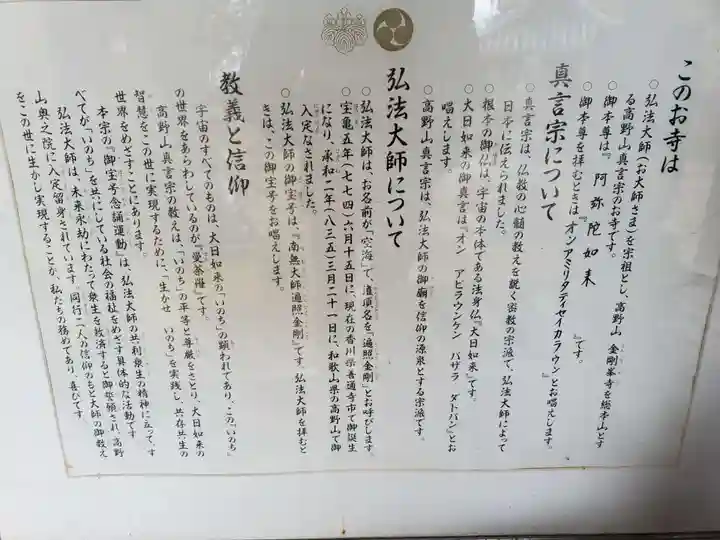 このお寺は
○ 弘法大師(お大師さま)を宗祖とし、高野山 金剛峯寺を総本山とす
る高野山真言宗のお寺です。
○ 御本尊は『 阿 弥 陀 如 来 』です。
○ 御本尊を拝むときは『オンアミリタテイセイカラウン』とお唱えします。
真言宗について
○ 真言宗は、仏教の心髄の教えを説く密教の宗派で、弘法大師によって
日本に伝えられました。
○ 根本の御仏は、宇宙の本体である法身仏『大日如来』です。
○ 大日如来の御真言は『オン アビラウンケン バザラ ダトバン』とお
唱えします。
○ 高野山真言宗は、弘法大師の御廟を信仰の源泉とする宗派です。
弘法大師について
○ 弘法大師は、お名前が『空海』で、遺項名を『遍照金剛』とお呼びします。
○ 宝亀五年(七七四)六月十五日に、現在の香川県善通寺市で御誕生
になり、承和二年(八三五)三月二十一日に、和歌山県の高野山で御
入定なされました。
○ 弘法大師の御宝号は、『南無大師遍照金剛』です。弘法大師を拝むと
きは、この御宝号をお唱えします。
教義と信仰
宇宙のすべてのものは、大日如来の『いのち』の顕われであり、この『いのち』
の世界をあらわしているのが『曼荼羅』です。
高野山真言宗の教えは、『いのち』の平等と尊厳をさとり、大日如来の
智慧をこの世に実現するために、『生かせ いのち』を実践し、共存共生の
世界をめざすことにあります。
本宗の『御宝号念誦運動』は、弘法大師の共利衆生の精神に立って、す
べてが『いのち』を共にしている社会の福祉をめざす具体的な活動です
弘法大師は、未来永劫にわたって衆生を救済すると御誓願され、高野
山奥之院に入定留身されています。同行二人の信仰のもと大師の御教え
をこの世に生かし実現することが、私たちの務めであり、喜びです